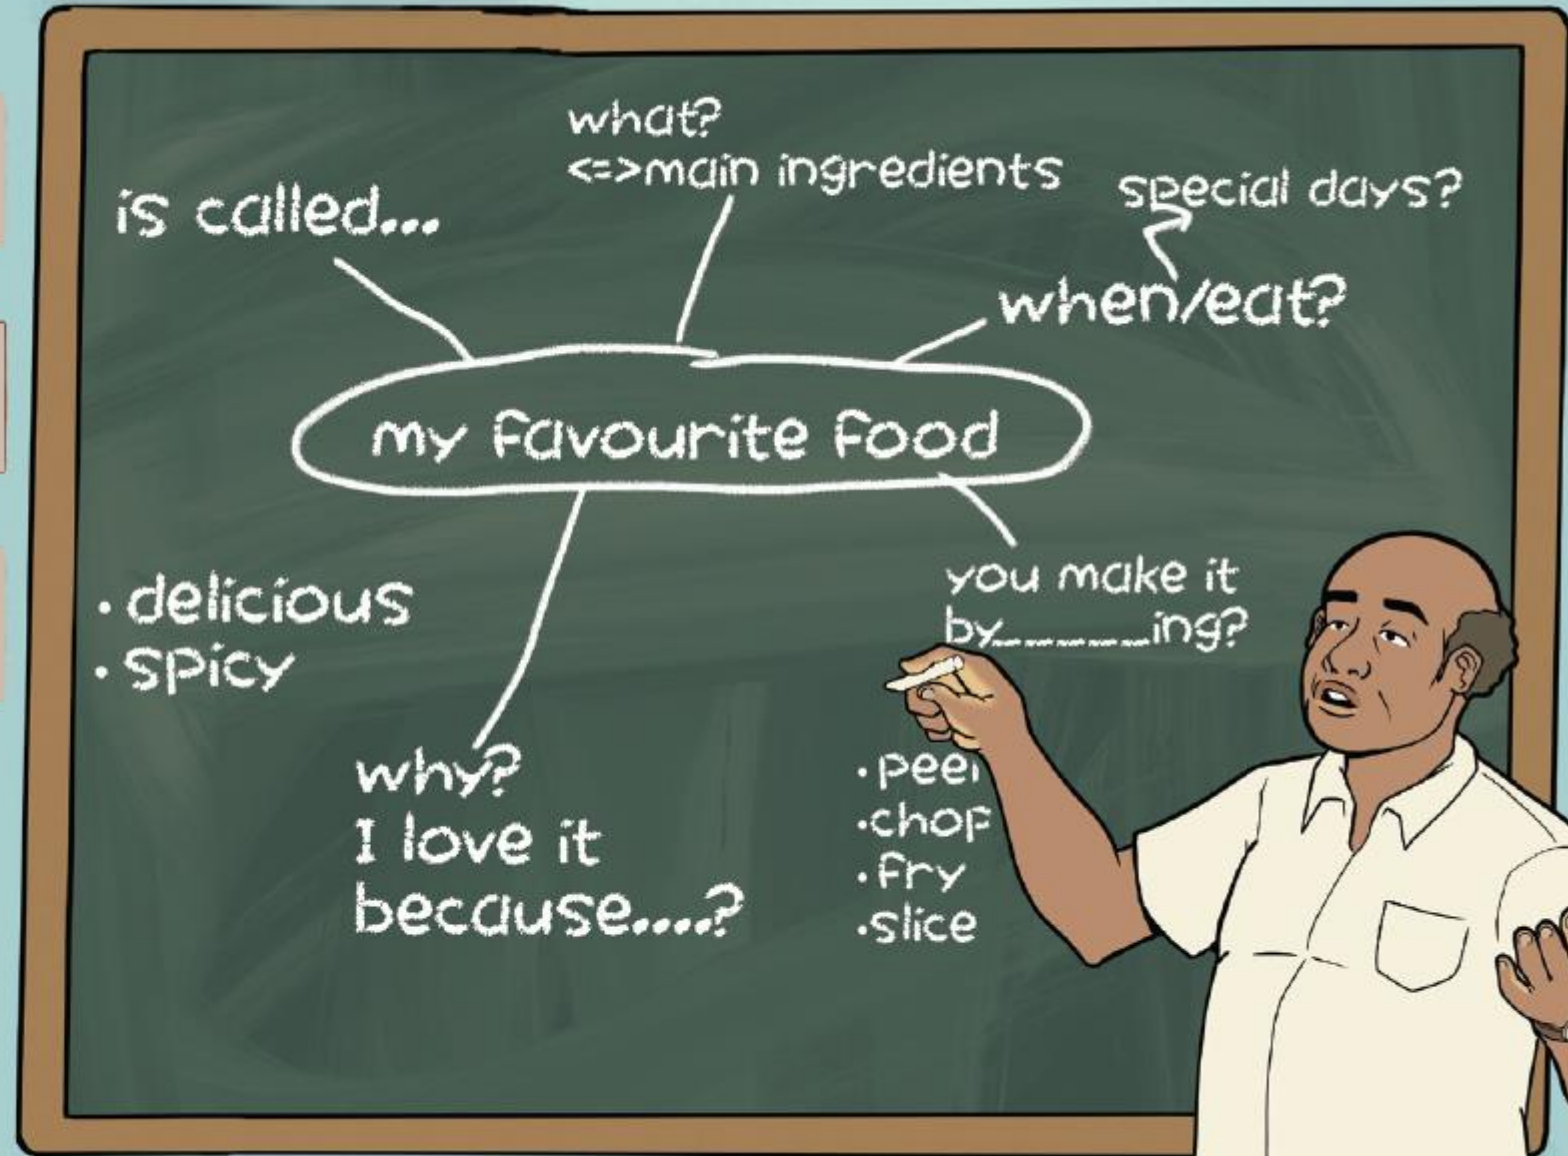 is called...
what?
<=>main ingredients
special days?
when/eat?
my favourite food
• delicious
• spicy
you make it
by______ing?
why?
I love it
because....?
•peel
•chop
•fry
•slice